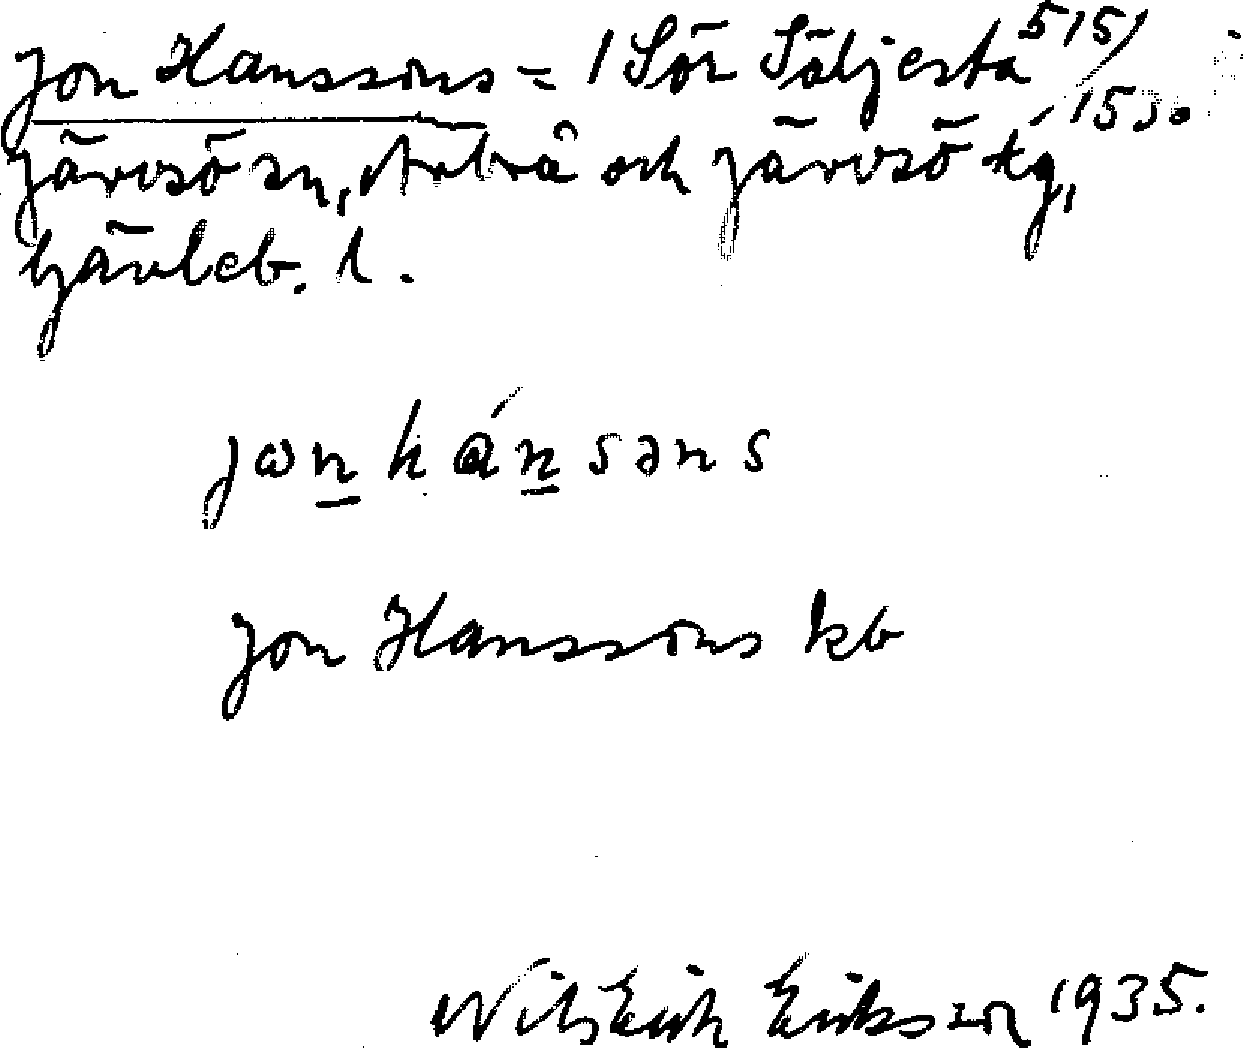 Jon Hanssons = 1 Sör Säljesta 515/1530
Järvsö sn, Arbrå och Järvsö tg,
Gävleb. l.
jωn hánsəns
Jon Hanssons kb
Nils Erik Eriksson 1935.